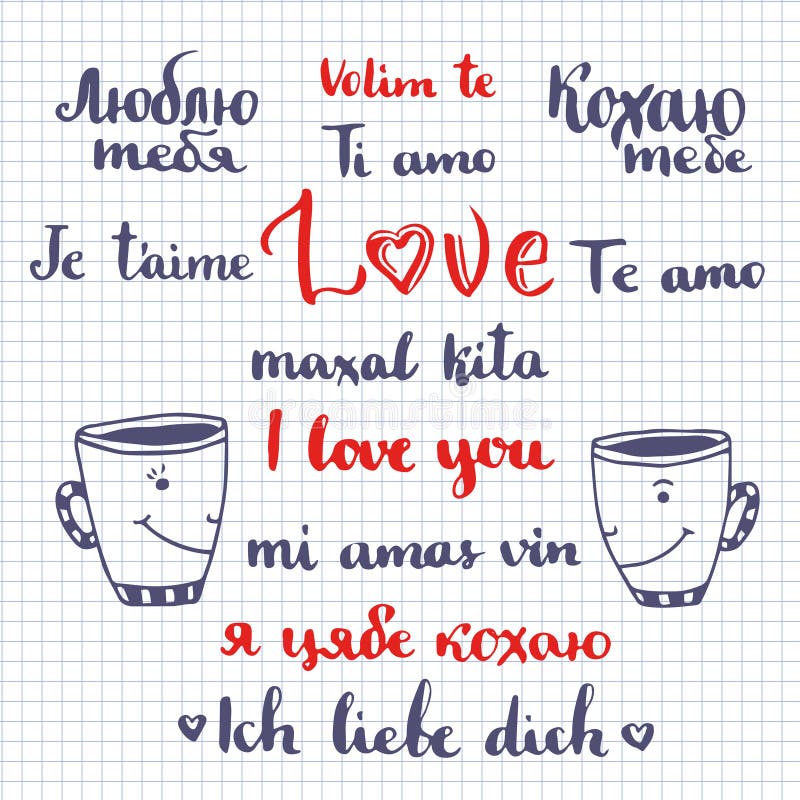 Volim te
Люблю
тебя
Кохаю
тебе
Ti amo
Je t'aime
Love
Te amo
maxal kita
I love you
mi amas vin
я цябе кохаю
Ich liebe dich